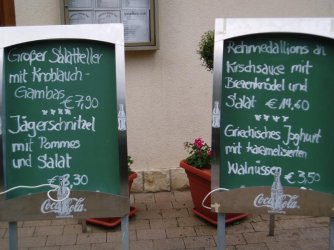 Großer Salatteller
mit Knoblauch-
Gambas € 7,90
Jägerschnitzel
mit Pommes
und Salat
Coca-Cola
Rehmedallions an
Kirschsauce mit
Brezenknödel und
Salat € 14,60
Griechisches Joghurt
mit karamelisierten
Walnüssen € 3,50
Coca-Cola